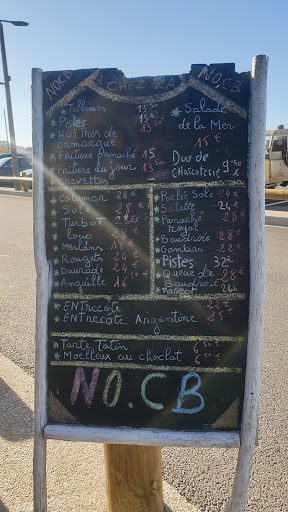 NO.CB CHEZ ZAZA NO.CB
Tellines 13.50
Pistes 15
Huitres de camarque 13.50
Friture Panaché 15
Friture du jour 13
Crevettes
Salade de la Mer 15 €
Duo de Charcuterie
Calamar 16 €
Sole 28 €
Turbot 28 €
Loup 28 €
Merlans 16 €
Rougets 24 €
Daurade 24 €
Anguille 16 €
Poelée Sole 24 €
Panaché royal 28 €
Baudroie 28 €
Gambas 22 €
Pistes 32 €
Queue de Baudroie 28 €
Pageot 26 €
ENTRECOTE
ENTRECOTE Argentine 25 €
Tarte Tatin
Moelleux au chocolat
NO.CB